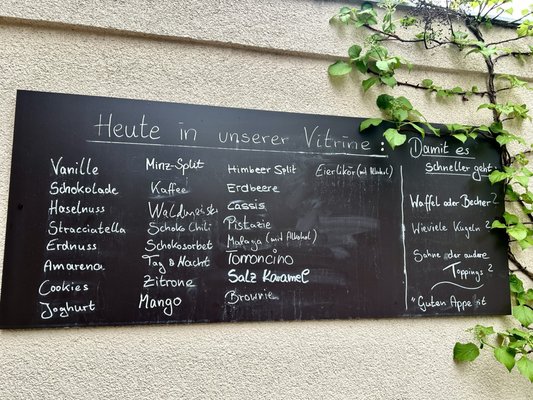 Heute in unserer Vitrine:
Vanille
Schokolade
Haselnuss
Stracciatella
Erdnuss
Amarena
Cookies
Joghurt
Minz-Split
Kaffee
Waldmeister
Schoko Chili
Schokosorbet
Tag & Nacht
Zitrone
Mango
Himbeer Split
Erdbeere
Cassis
Pistazie
Malaga (mit Alkohol)
Tomoncino
Salz Karamel
Brownie
Eierlikör (mit Alkohol)
Damit es
schneller geht:
Waffel oder Becher?
Wieviele Kugeln?
Sahne oder andere
Toppings?
"Guten Appe tit